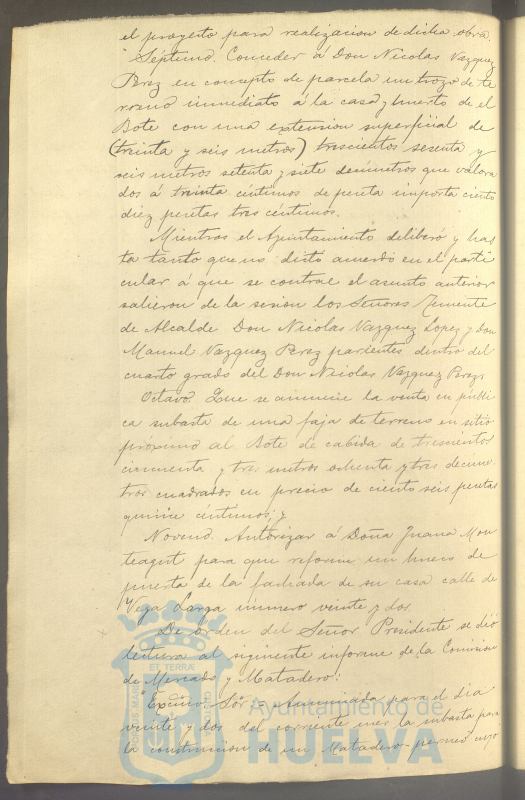 el proyecto para realizacion de dicha obra.
Séptimo. Conceder á Don Nicolas Vazquez
Perez en concepto de parcela un trozo de te
rreno inmediato á la casa y huerto de el
Bote con una extension superficial de
(treinta y seis metros) trescientos sesenta y
seis metros setenta y siete decimetros que valora
dos á treinta centimos de peseta importa ciento
diez pesetas tres céntimos.
Mientras el Ayuntamiento deliberó y has
ta tanto que no dictó acuerdo en el parti
cular á que se contrae el asunto anterior
salieron de la sesion los Señores Teniente
de Alcalde Don Nicolas Vazquez Lopez y Don
Manuel Vazquez Perez parientes dentro del
cuarto grado del Don Nicolas Vazquez Perez.
Octavo. Que se anuncie la venta en públi
ca subasta de una faja de terreno en sitio
próximo al Bote de cabida de trescientos
cincuenta y tres metros ochenta y tres decime
tros cuadrados en precio de ciento seis pesetas
quince céntimos; y
Noveno. Autorizar á Doña Juana Mon
teagut para que reforme un hueco de
puerta de la fachada de su casa calle de
Vega Larga número veinte y dos.
De orden del Señor Presidente se dió
lectura al siguiente informe de la Comision
de Mercado y Matadero:
"Excmo. Sor = Anunciada para el dia
veinte y dos del corriente mes la subasta para
la construccion de un Matadero
Ayuntamiento de
HUELVA